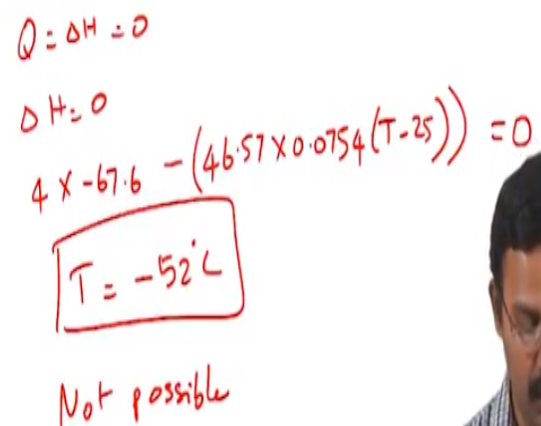 Q = ΔH = 0
ΔH = 0
4 x -67.6 - (46.57 x 0.0754 (T-25)) = 0
T = -52°C
Not possible